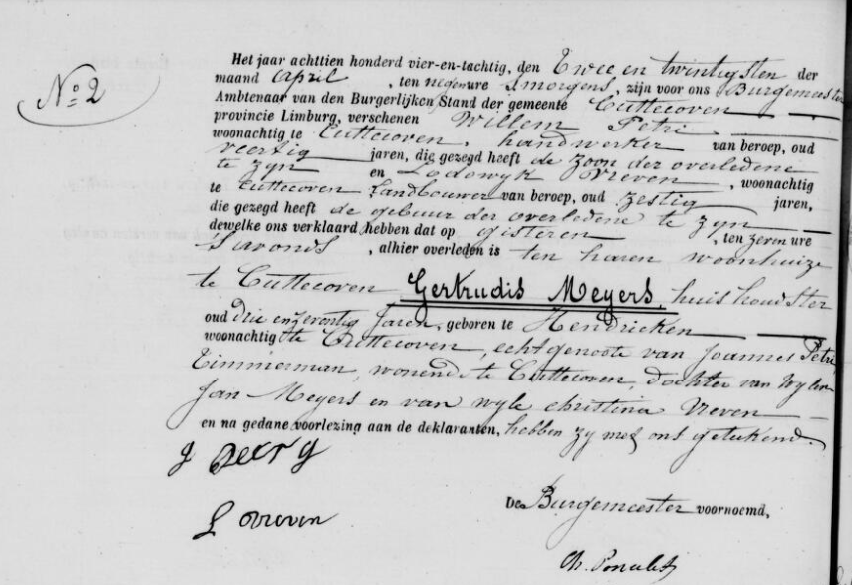 No. 2
Het jaar achttien honderd vier-en-tachtig, den Twee en twintigsten der
maand april, ten negen ure s'morgens, zijn voor ons Burgemeester
Ambtenaar van den Burgerlijken Stand der gemeente Cuttecoven
provincie Limburg, verschenen Willem Petri
woonachtig te Cuttecoven, handwerker van beroep, oud
veertig jaren, die gezegd heeft de zoon der overledene
te zyn en Lodewyk Vreven, woonachtig
te Cuttecoven Landbouwer van beroep, oud zestig jaren,
die gezegd heeft de gebuur der overledene te zyn
dewelke ons verklaard hebben dat op gisteren, ten zeven ure
s'avonds, alhier overleden is ten haren woonhuize
te Cuttecoven Gertrudis Meyers, huishoudster
oud drie en zeventig Jaren, geboren te Hendrieken
woonachtig te Cuttecoven, echtgenoote van Joannes Petri
Timmerman, wonende te Cuttecoven, dochter van wylen
Jan Meyers en van wyle christina Vreven
en na gedane voorlezing aan de deklaranten, hebben zy met ons geteekend.
L Vreven
De Burgemeester voornoemd,